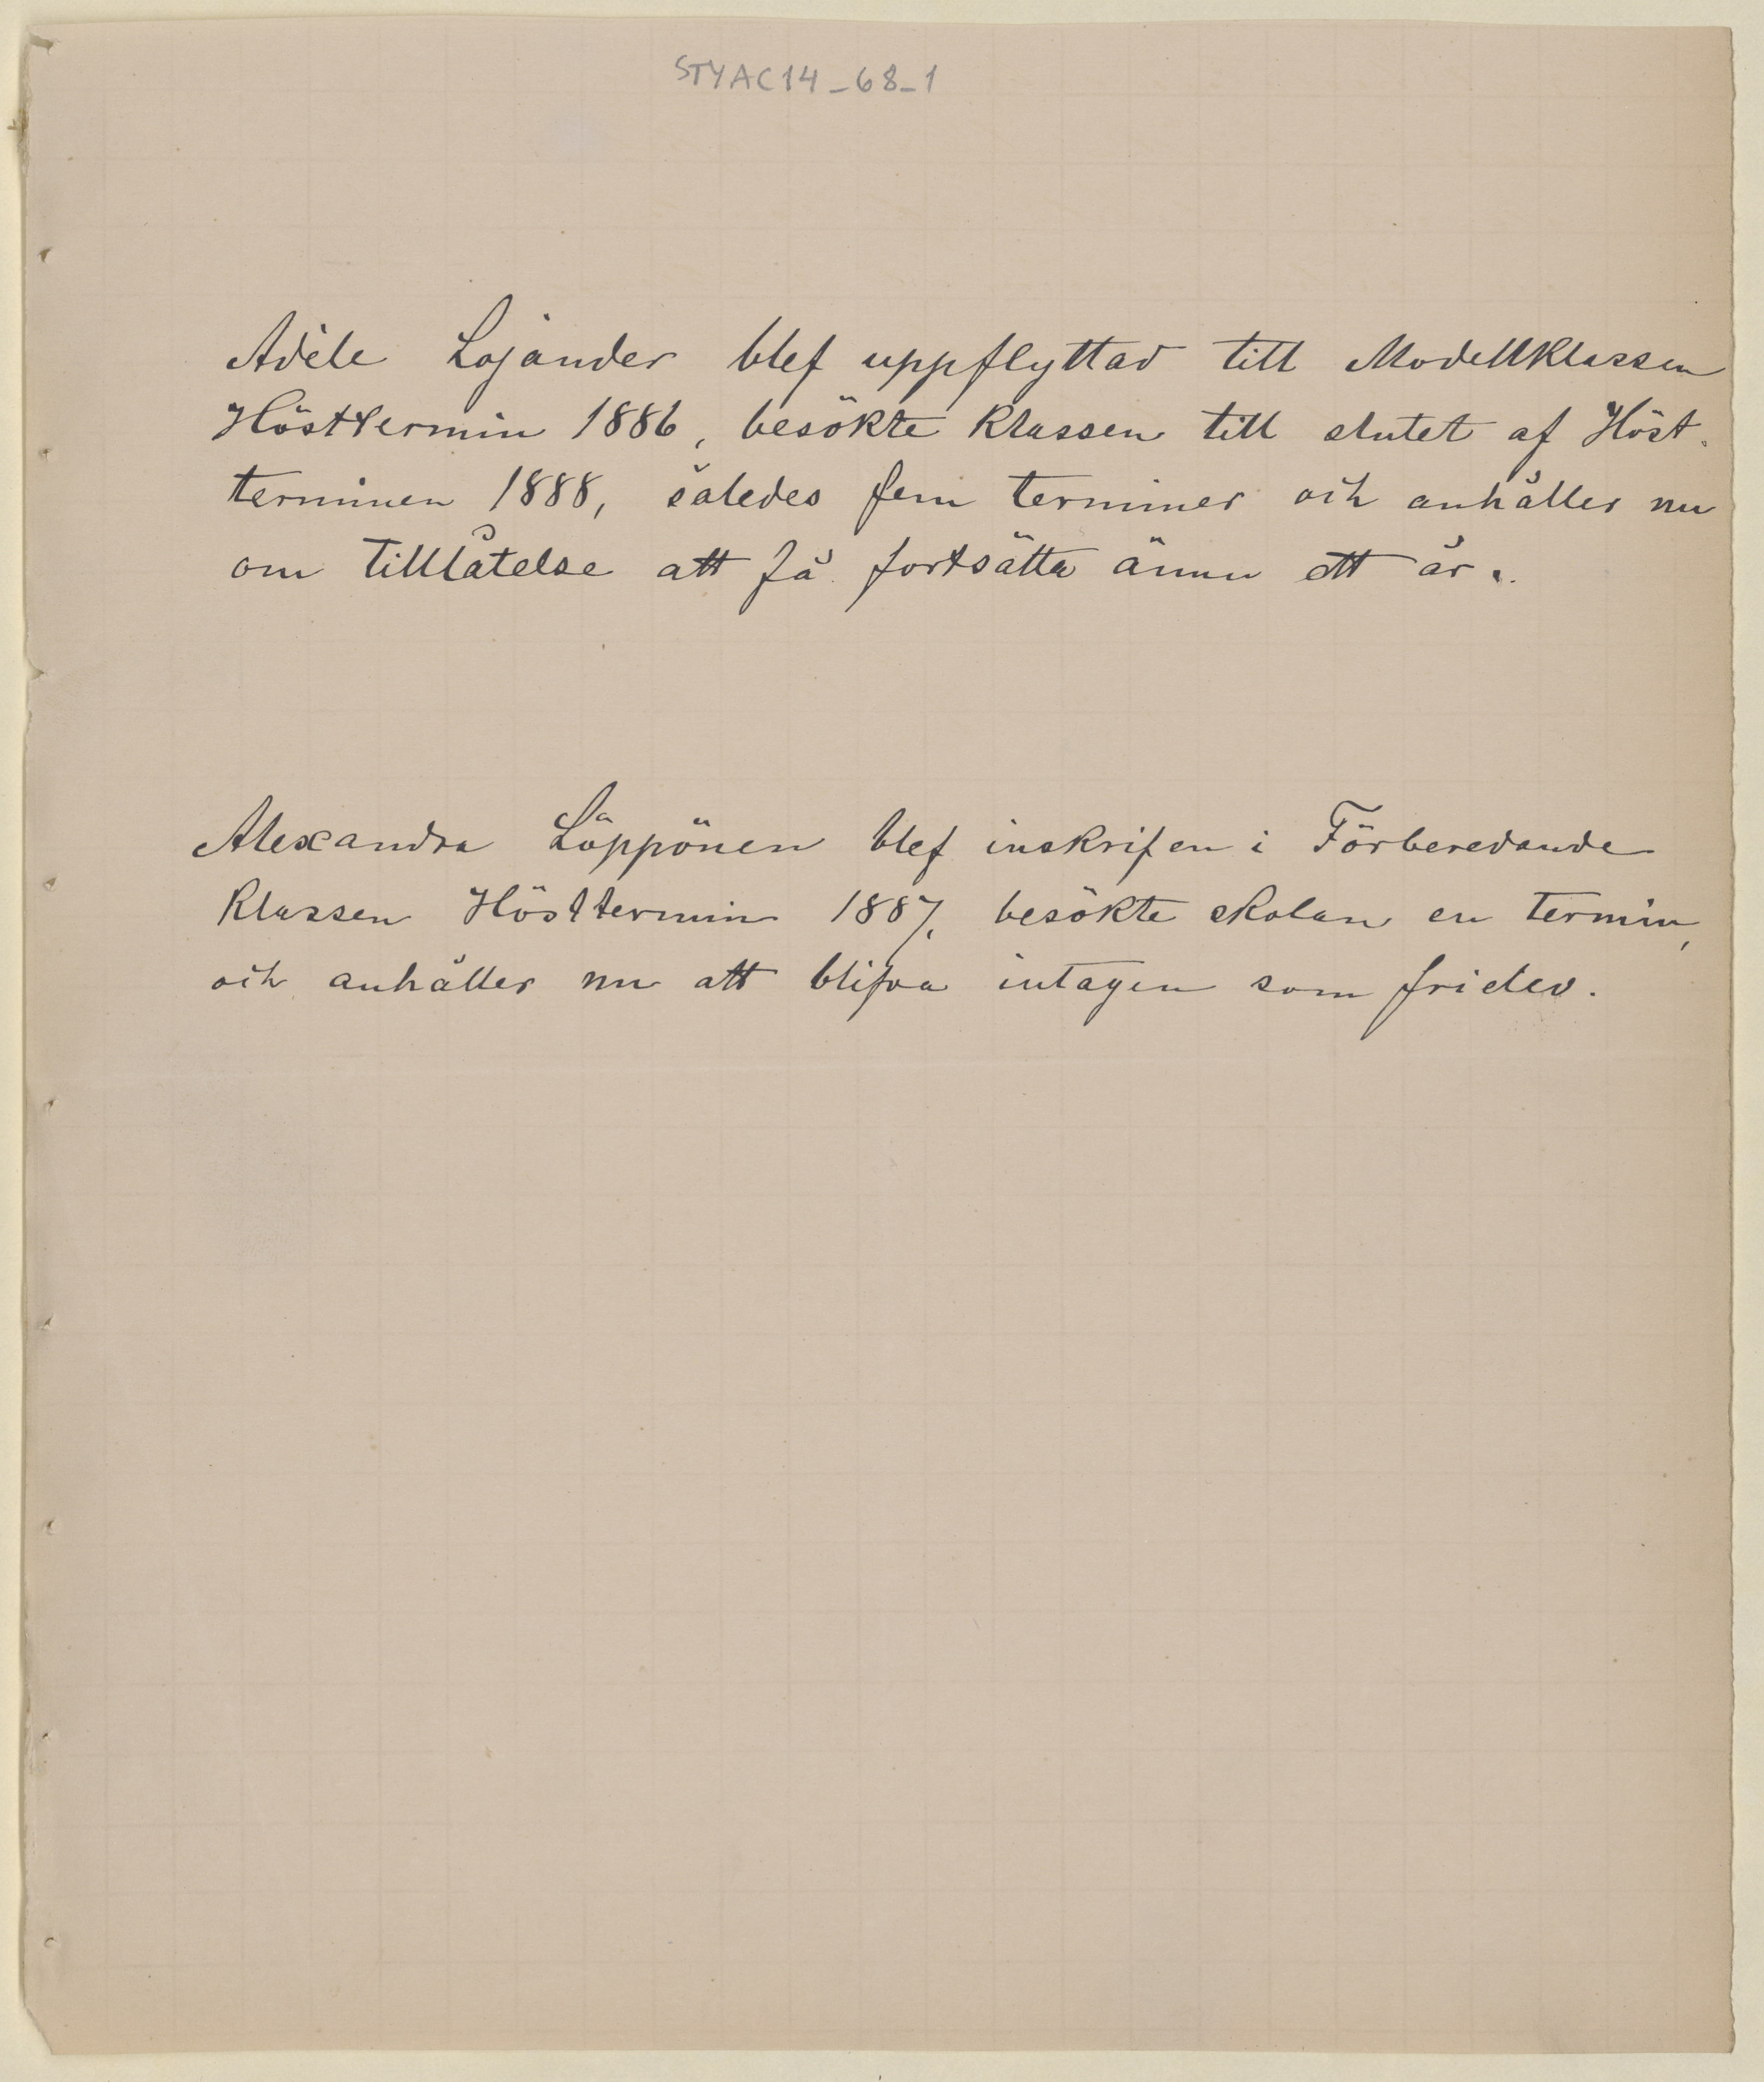 STYAC14_68_1
Adèle Lojander blef uppflyttad till Modellklassen
Hösttermin 1886, besökte klassen till slutet af Höst-
terminen 1888, således fem terminer och anhåller nu
om tilllåtelse att få fortsätta ännu ett år.
Alexandra Löppönen blef inskrifen i Förberedande
Klassen Hösttermin 1887, besökte skolan en termin,
och anhåller nu att blifva intagen som fridev.